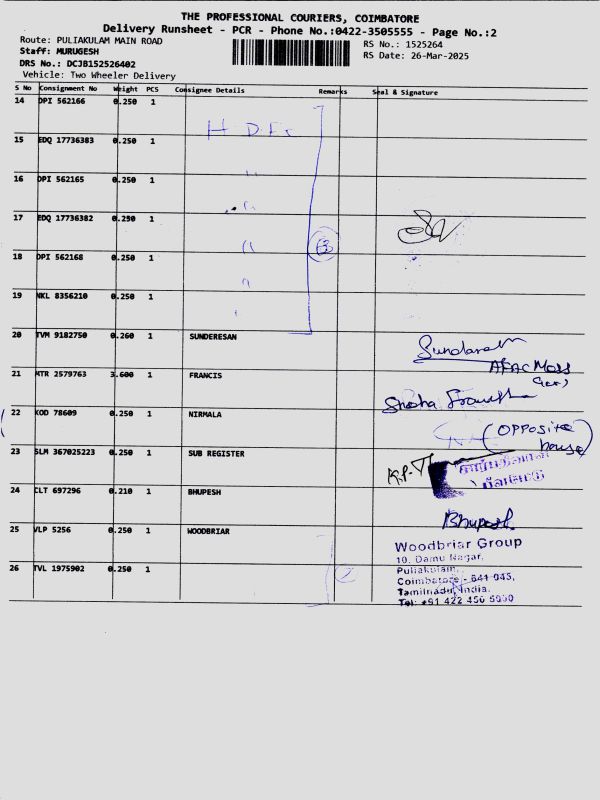 THE PROFESSIONAL COURIERS, COIMBATORE
Delivery Runsheet - PCR - Phone No.:0422-3505555 - Page No.:2
Route: PULIAKULAM MAIN ROAD
RS No.: 1525264
Staff: MURUGESH
RS Date: 26-Mar-2025
DRS No.: DCJB152526402
Vehicle: Two Wheeler Delivery
S No Consignment No Weight PCS Consignee Details Remarks Seal & Signature
14 DPI 562166 0.250 1
H D F
15 EDQ 17736383 0.250 1
16 DPI 562165 0.250 1
17 EDQ 17736382 0.250 1
18 DPI 562168 0.250 1
19 NKL 8356210 0.250 1
20 TVM 9182750 0.260 1 SUNDERESAN
21 MTR 2579763 3.600 1 FRANCIS
22 KOD 78609 0.250 1 NIRMALA
(Opposite
house)
23 SLM 367025223 0.250 1 SUB REGISTER
24 CLT 697296 0.210 1 BHUPESH
Bhupesh
25 VLP 5256 0.250 1 WOODBRIAR
Woodbriar Group
10, Damu Nagar,
Puliakulam,
26 TVL 1975902 0.250 1
2
Coimbatore - 641 045,
Tamilnadu, India.
Tel: +91 422 456 5000